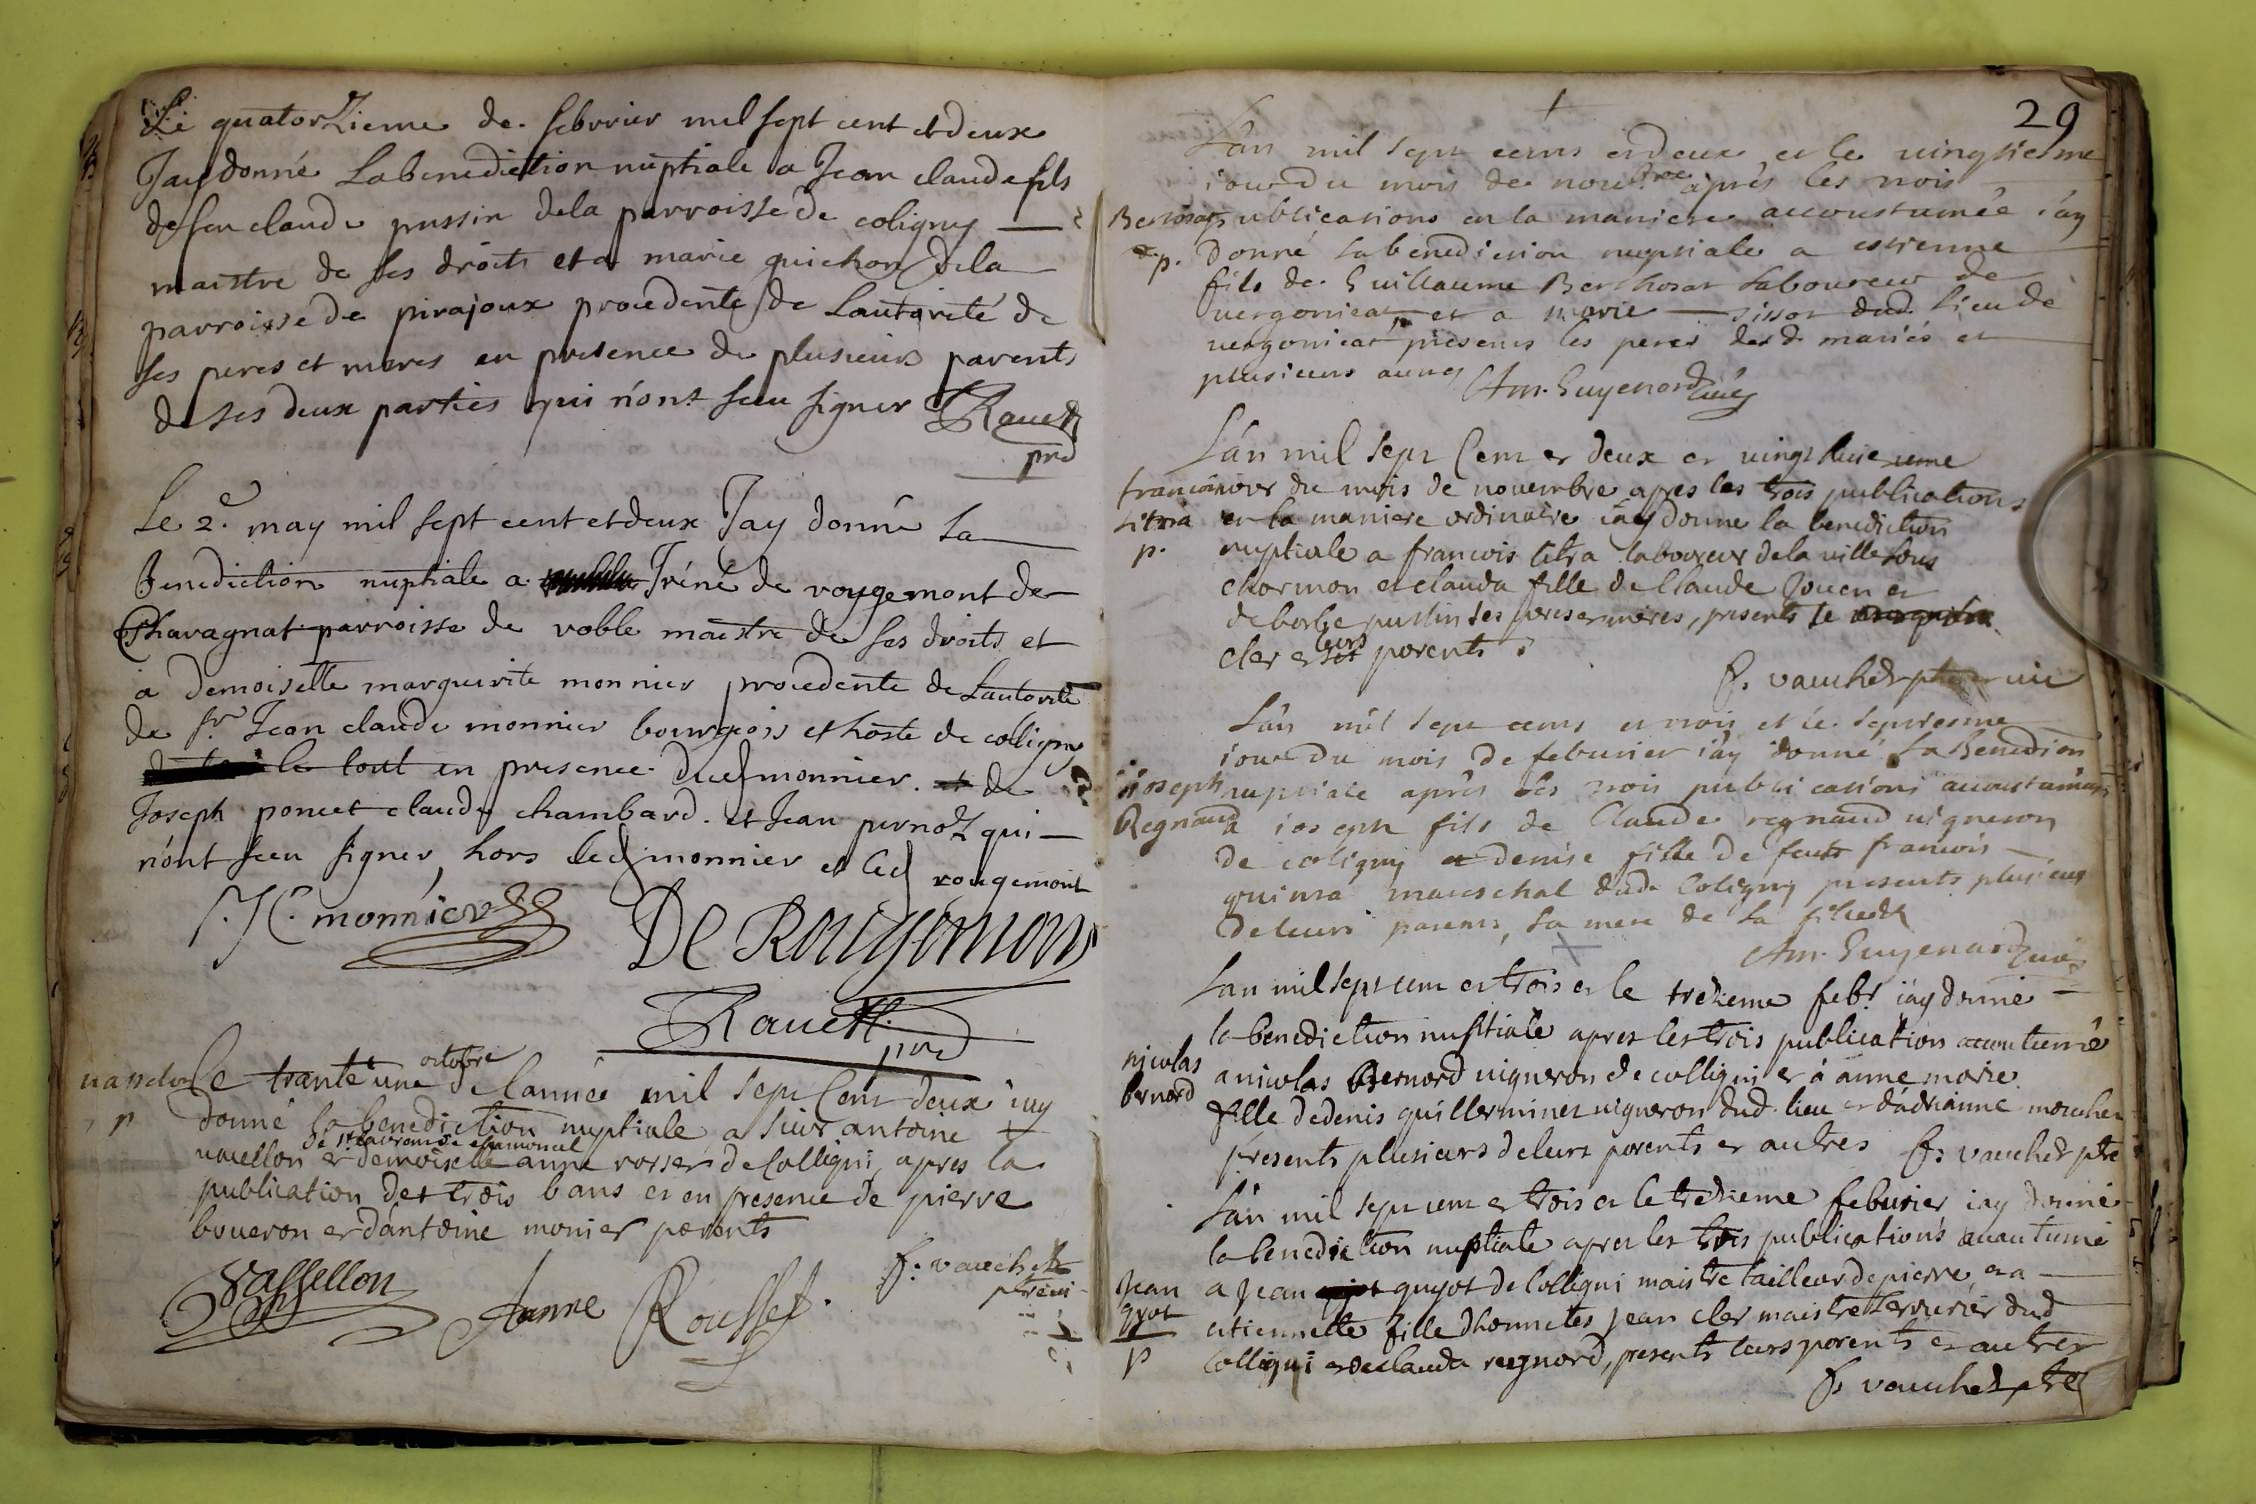 Le quatorzieme de febvrier mil sept cent et deux
Jay donné La benediction nuptiale a Jean claude fils
de feu claude pussin dela parroisse de coligny
maistre de ses droits et a marie guichon dela
parroisse de pirajoux procedente de Lautorité de
ses peres et meres en presence de plusieurs parents
de ses deux parties qui n'ont sceu signer
Le 2.e may mil sept cent et deux Jay donné La
Benediction nuptiale a Iréné de rougemont de
Chavagnat parroisse de roble maistre de ses droits et
a Demoiselle marguerite monnier procedente de Lautorité
de sr Jean claude monnier bourgeois et hoste de colligny
le tout en presence dud monnier. de
Joseph poncet claude chambard. et Jean pernod qui
n'ont sceu signer, hors led monnier et led rougemont
J C. monnier
De Rougemont
octobre
Le trante une de lannée mil sept Cent deux iay
p donné la benediction nuptiale a sieur antoine
de st laurans de
vacellon et demoiselle anne rosset de Colligni, apres la
publication des trois bans et en presence de pierre
boueron et d'antoine monier parents
f. vauchet
Vassellon
Anne Roussel
29
L'an mil sept cents et deux et le vingtiesme
iour du mois de nouvbre après les trois
publications en la maniere accoustumée i'ay
p. donné la benediction nuptiale a estienne
fils de Guillaume Berthorat Laboureur de
vergonicat et a marie sissot dud. lieu de
vergonicat presents les peres desd. mariés et
plusieurs autres Am. Guyenard curé
L'an mil sept Cent et deux et vingt huicieme
francois iour du mois de novembre apres les trois publications
titra en la maniere ordinaire iay donne la benediction
p. nuptiale a francois titra laboureur dela ville sous
charmon et clauda fille de Claude Jouen et
de borbe pussin ses peres et meres, presents le
cler et leurs parents
f. vauchet ptre et vic
L'an mil sept cents et trois et le septiesme
iour du mois de febvrier i'ay donné La Benediction
ioseph nuptiale après les trois publications accoustumées
Regnaud a ioseph fils de Claude regnaud vigneron
de coligny et denise fille de feut francois
guinra mareschal dud. Coligny presents plusieurs
de leurs parents, la mere de la fille
Am. Guyenard curé
Lan mil sept cent et trois et le trezieme febr iay donné
la benediction nuptiale apres les trois publication acoutumé
nicolas a nicolas Bernord vigneron de colligni et à anne marie
bernord fille de denis guillerminet vigneron dud. lieu et d'adrianne
presents plusieurs de leurs parents et autres f. vauchet ptre
L'an mil sept cent et trois et le trezieme feburier iay donné
la benediction nuptiale apres les trois publications acoutumé
Jean a Jean guyot de Colligni maistre tailleur de pierre, et a
gyot etiennette fille d'honnetes Jean cler maistre serrurier dud
p Colligni et de clauda regnord, presents leurs parents et autres
f. vauchet ptre